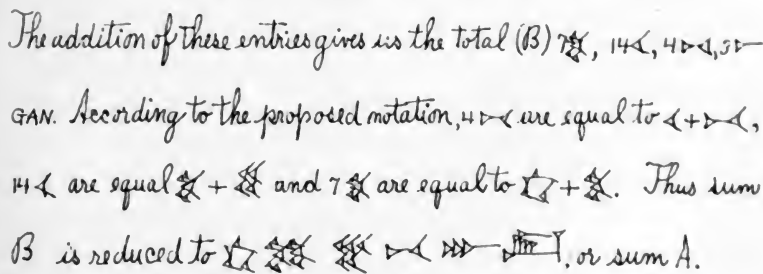 The addition of these entries gives us the total (B) 7, 14𒌋, 4, 3
GAN. According to the proposed notation, 4 are equal to 𒌋 + ,
14 𒌋 are equal + and 7 are equal to + . Thus sum
B is reduced to , or sum A.